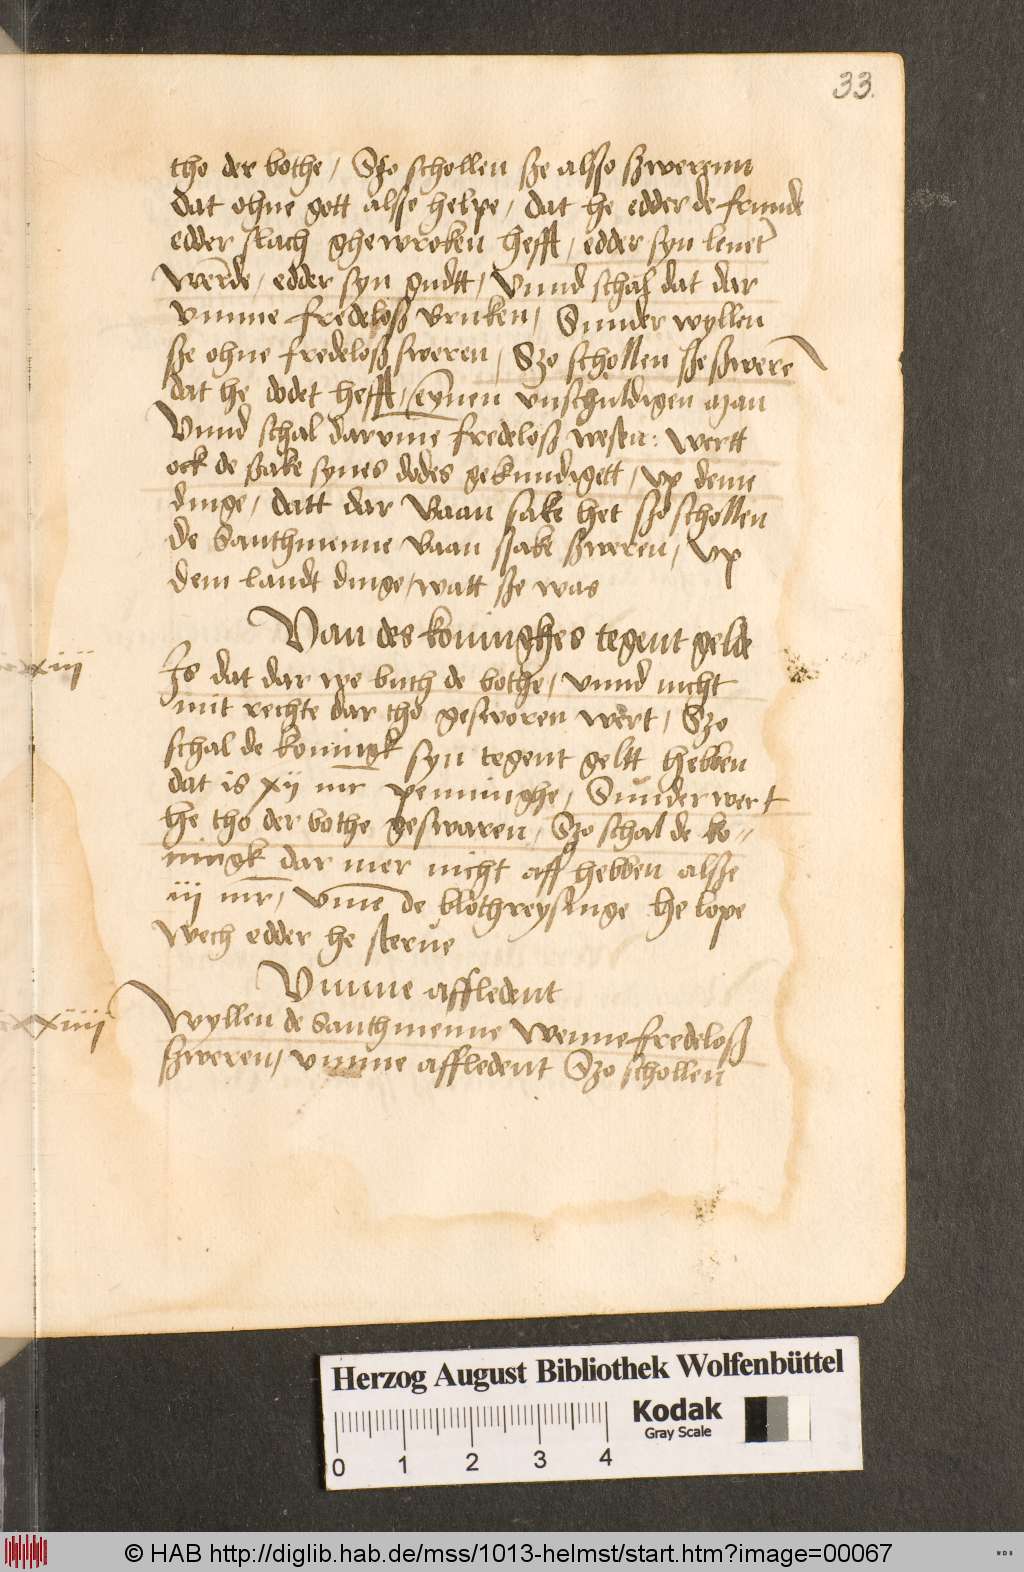 33.
tho der bothe, Szo schollen sze alsso szwerenn
dat ohne gott alsse helpe, dat he edder de frunde
edder slach ghewroken hefft, edder syn leuet
werde, edder syn gudtt, Vnnd schal dat dar
vmme fredeloß bruken, Sunder wyllen
sze ohne fredeloß sweren, Szo schollen sze szwerē
dat he dodet hefft, eynen vnschuldigen man
Vnnd schal darvm̄e fredeloß wesen: wertt
ock de szake synes dodes gekundigett, vp deme
dinge, datt dar vaan sake het szo schollen
de Santhmenne vaan ssake szweren, vp
dem landt dinge, watt sze was
Van des koninghes tegent gelde
xxiii
Is dat dar we buth de bothe, vnnd nicht
mit rechte dar tho gesworen wert, Szo
schal de koningk syn tegent geltt hebben
dat is xij mr penninghe, Sunder wert
he tho der bothe geswaren, Szo schal de ko-
ningk dar mer nicht aff hebben alsse
iij mr, vm̄e de blothreysinge he lope
wech edder he sterue
Vmme affledent
xxiiii
Wyllen de Santhmenne wenne fredeloß
szweren, vmme affledent Szo schollen
Herzog August Bibliothek Wolfenbüttel
Kodak
Gray Scale
0 1 2 3 4
© HAB http://diglib.hab.de/mss/1013-helmst/start.htm?image=00067